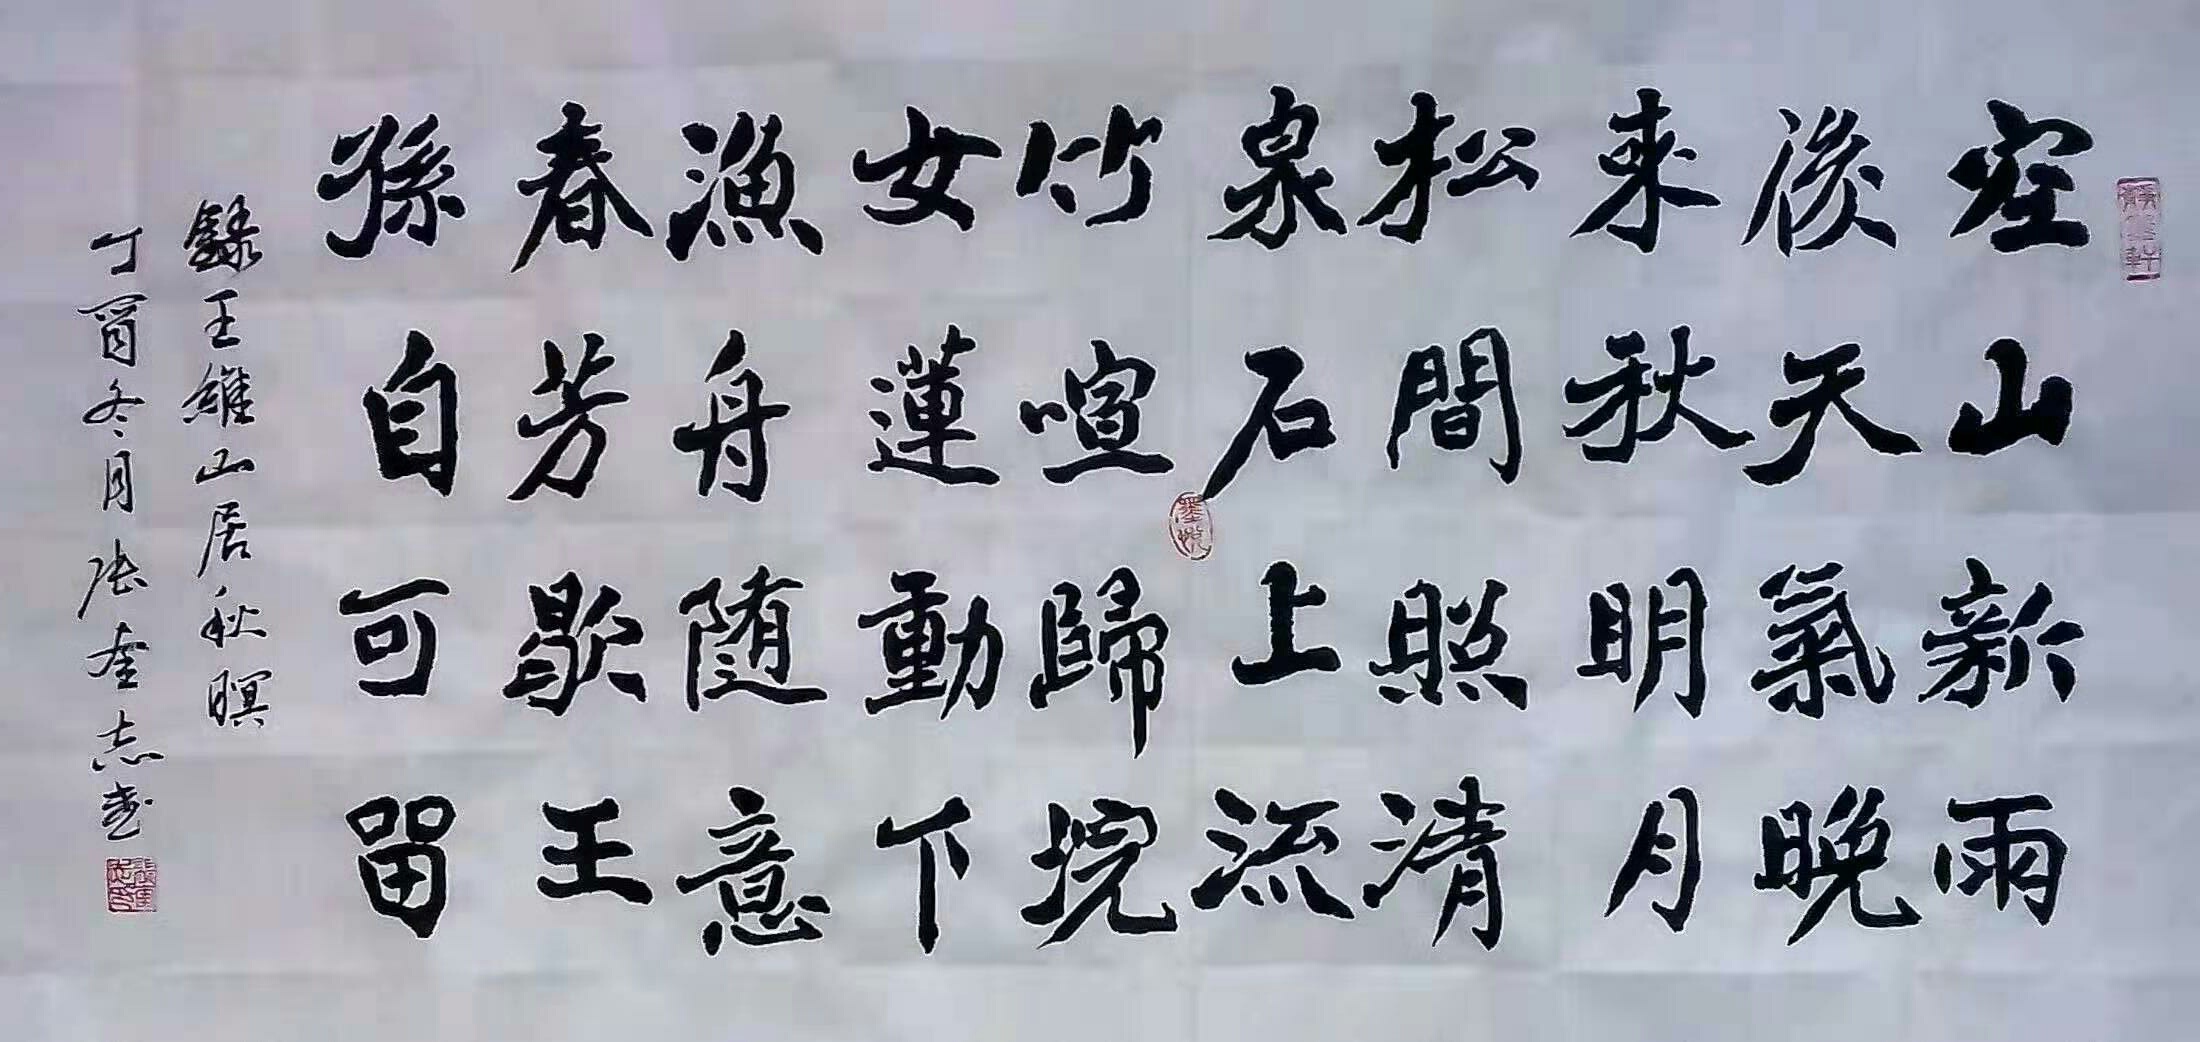 空山新雨
後天氣晚
来秋明月
松間照清
泉石上流
竹喧歸浣
女蓮動下
漁舟随意
春芳歇王
孫自可留
錄王維山居秋暝
丁酉冬月張奎志書